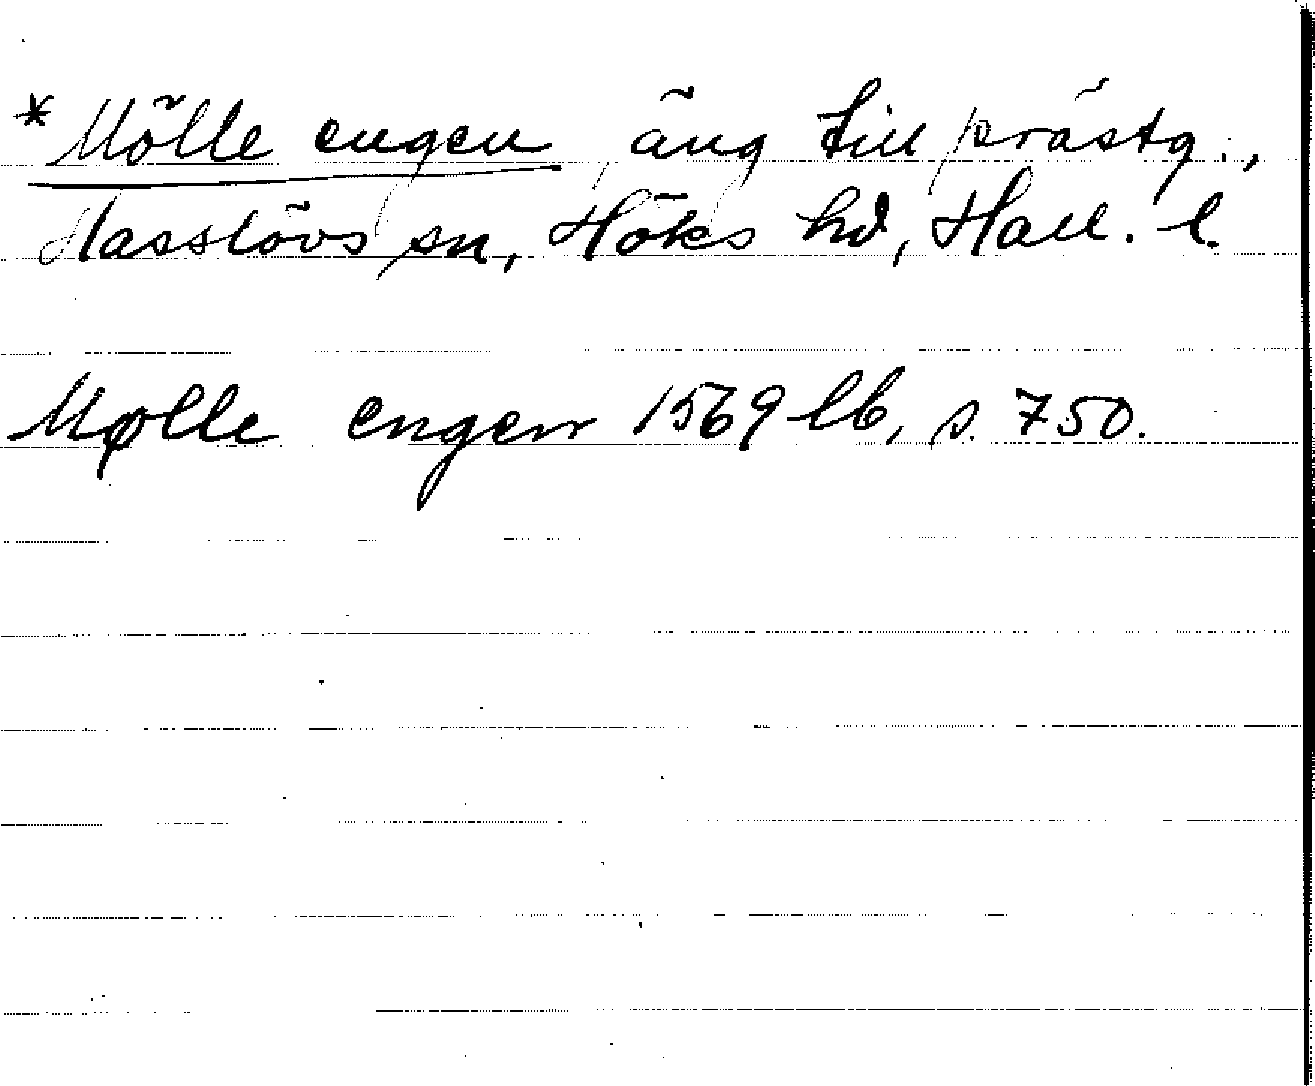 *Mölle engen, äng till prästg.,
Hasslövs sn, Höks hd, Hall. l.
Mølle engen 1569 lb, s. 750.